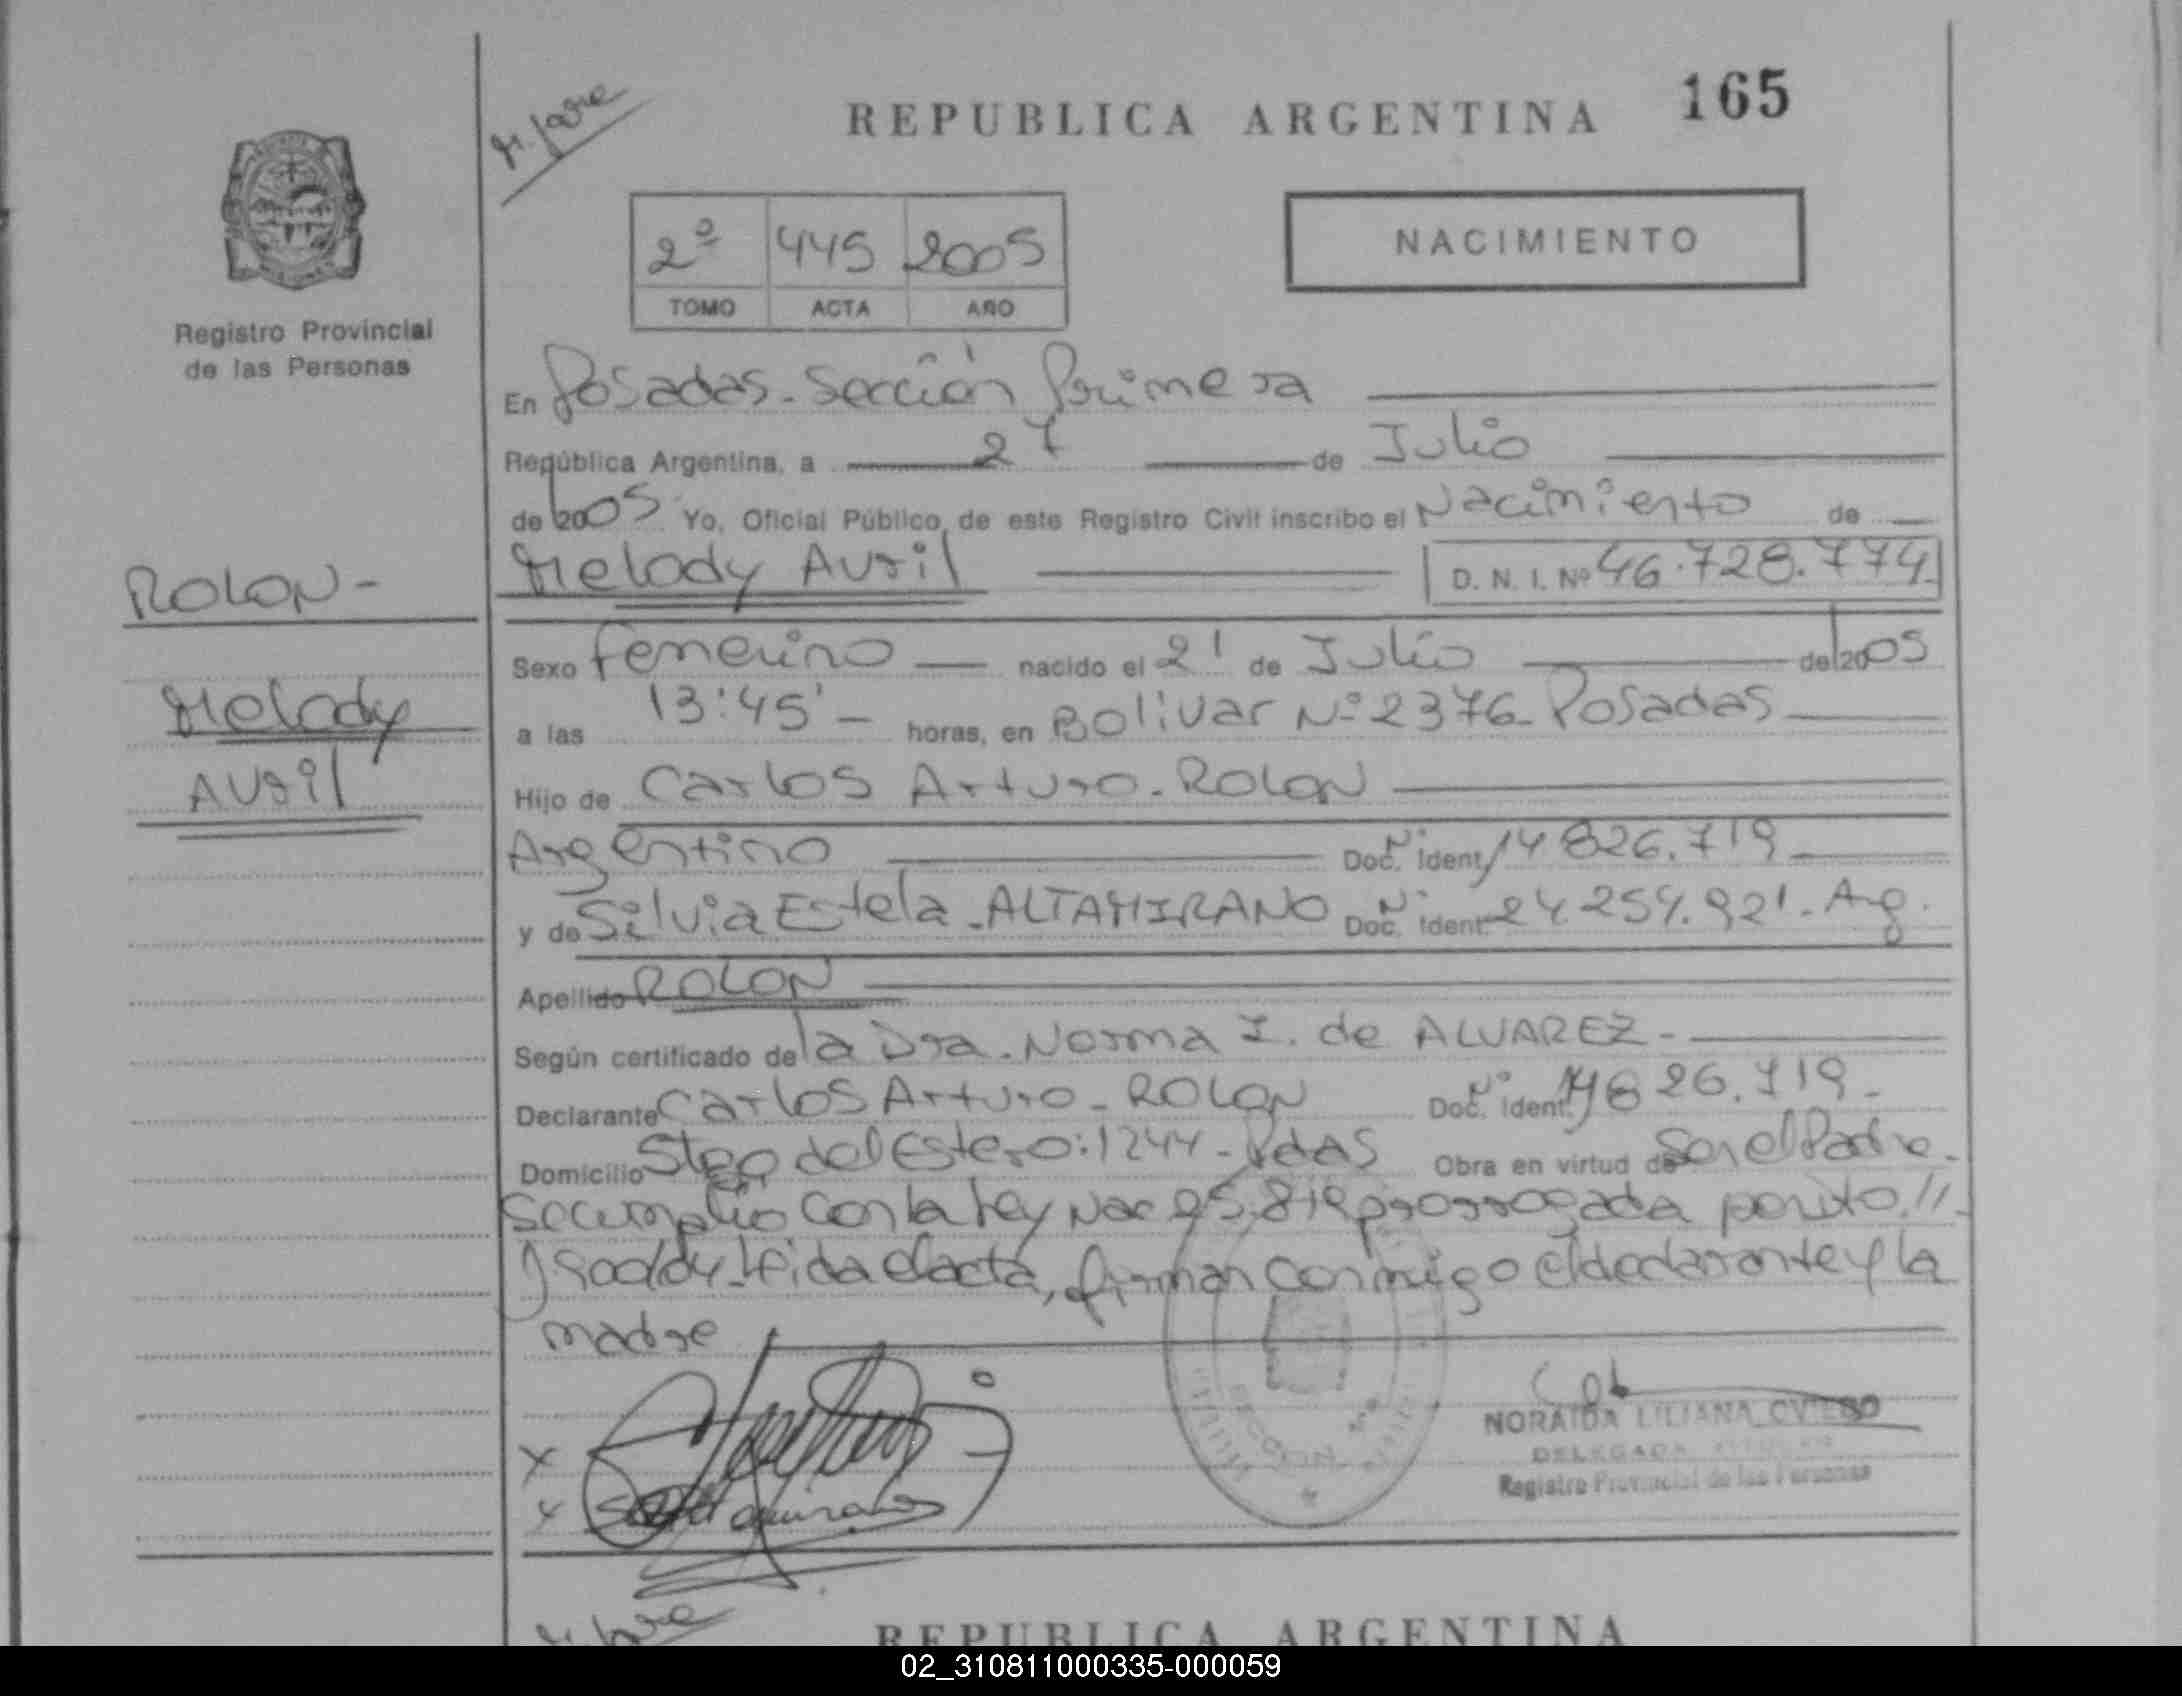 REPUBLICA ARGENTINA 165
2º 445 2005
TOMO ACTA AÑO
NACIMIENTO
Registro Provincial
de las Personas
En Posadas - Sección Primera
República Argentina, a 27 de Julio
de 2005 Yo, Oficial Público de este Registro Civil inscribo el Nacimiento de
Melody Avril D. N. I. Nº 46.728.774
ROLON -
Melody
Avril
Sexo femenino nacido el 21 de Julio de 2005
a las 13:45' - horas, en Bolivar Nº 2376 - Posadas
Hijo de Carlos Arturo - ROLON
Argentino Doc. Nº Ident. 14826.719
y de Silvia Estela - ALTAMIRANO Doc. Nº Ident. 24.254.921 - Arg.
Apellido ROLON
Según certificado de la Dra. Norma I. de ALVAREZ -
Declarante Carlos Arturo - ROLON Doc. Nº Ident. 14826.719 -
Domicilio Stgo del Estero: 1244 - Pdas Obra en virtud de Ser el Padre -
Se cumplio con la Ley Nac 25.819 prorrogada por Dto. //
Leida el acta, firman conmigo el declarante y la
madre
X
X
NORAIDA LILIANA OVIEDO
DELEGADA TITULAR
Registro Provincial de las Personas
REPUBLICA ARGENTINA
02_310811000335-000059